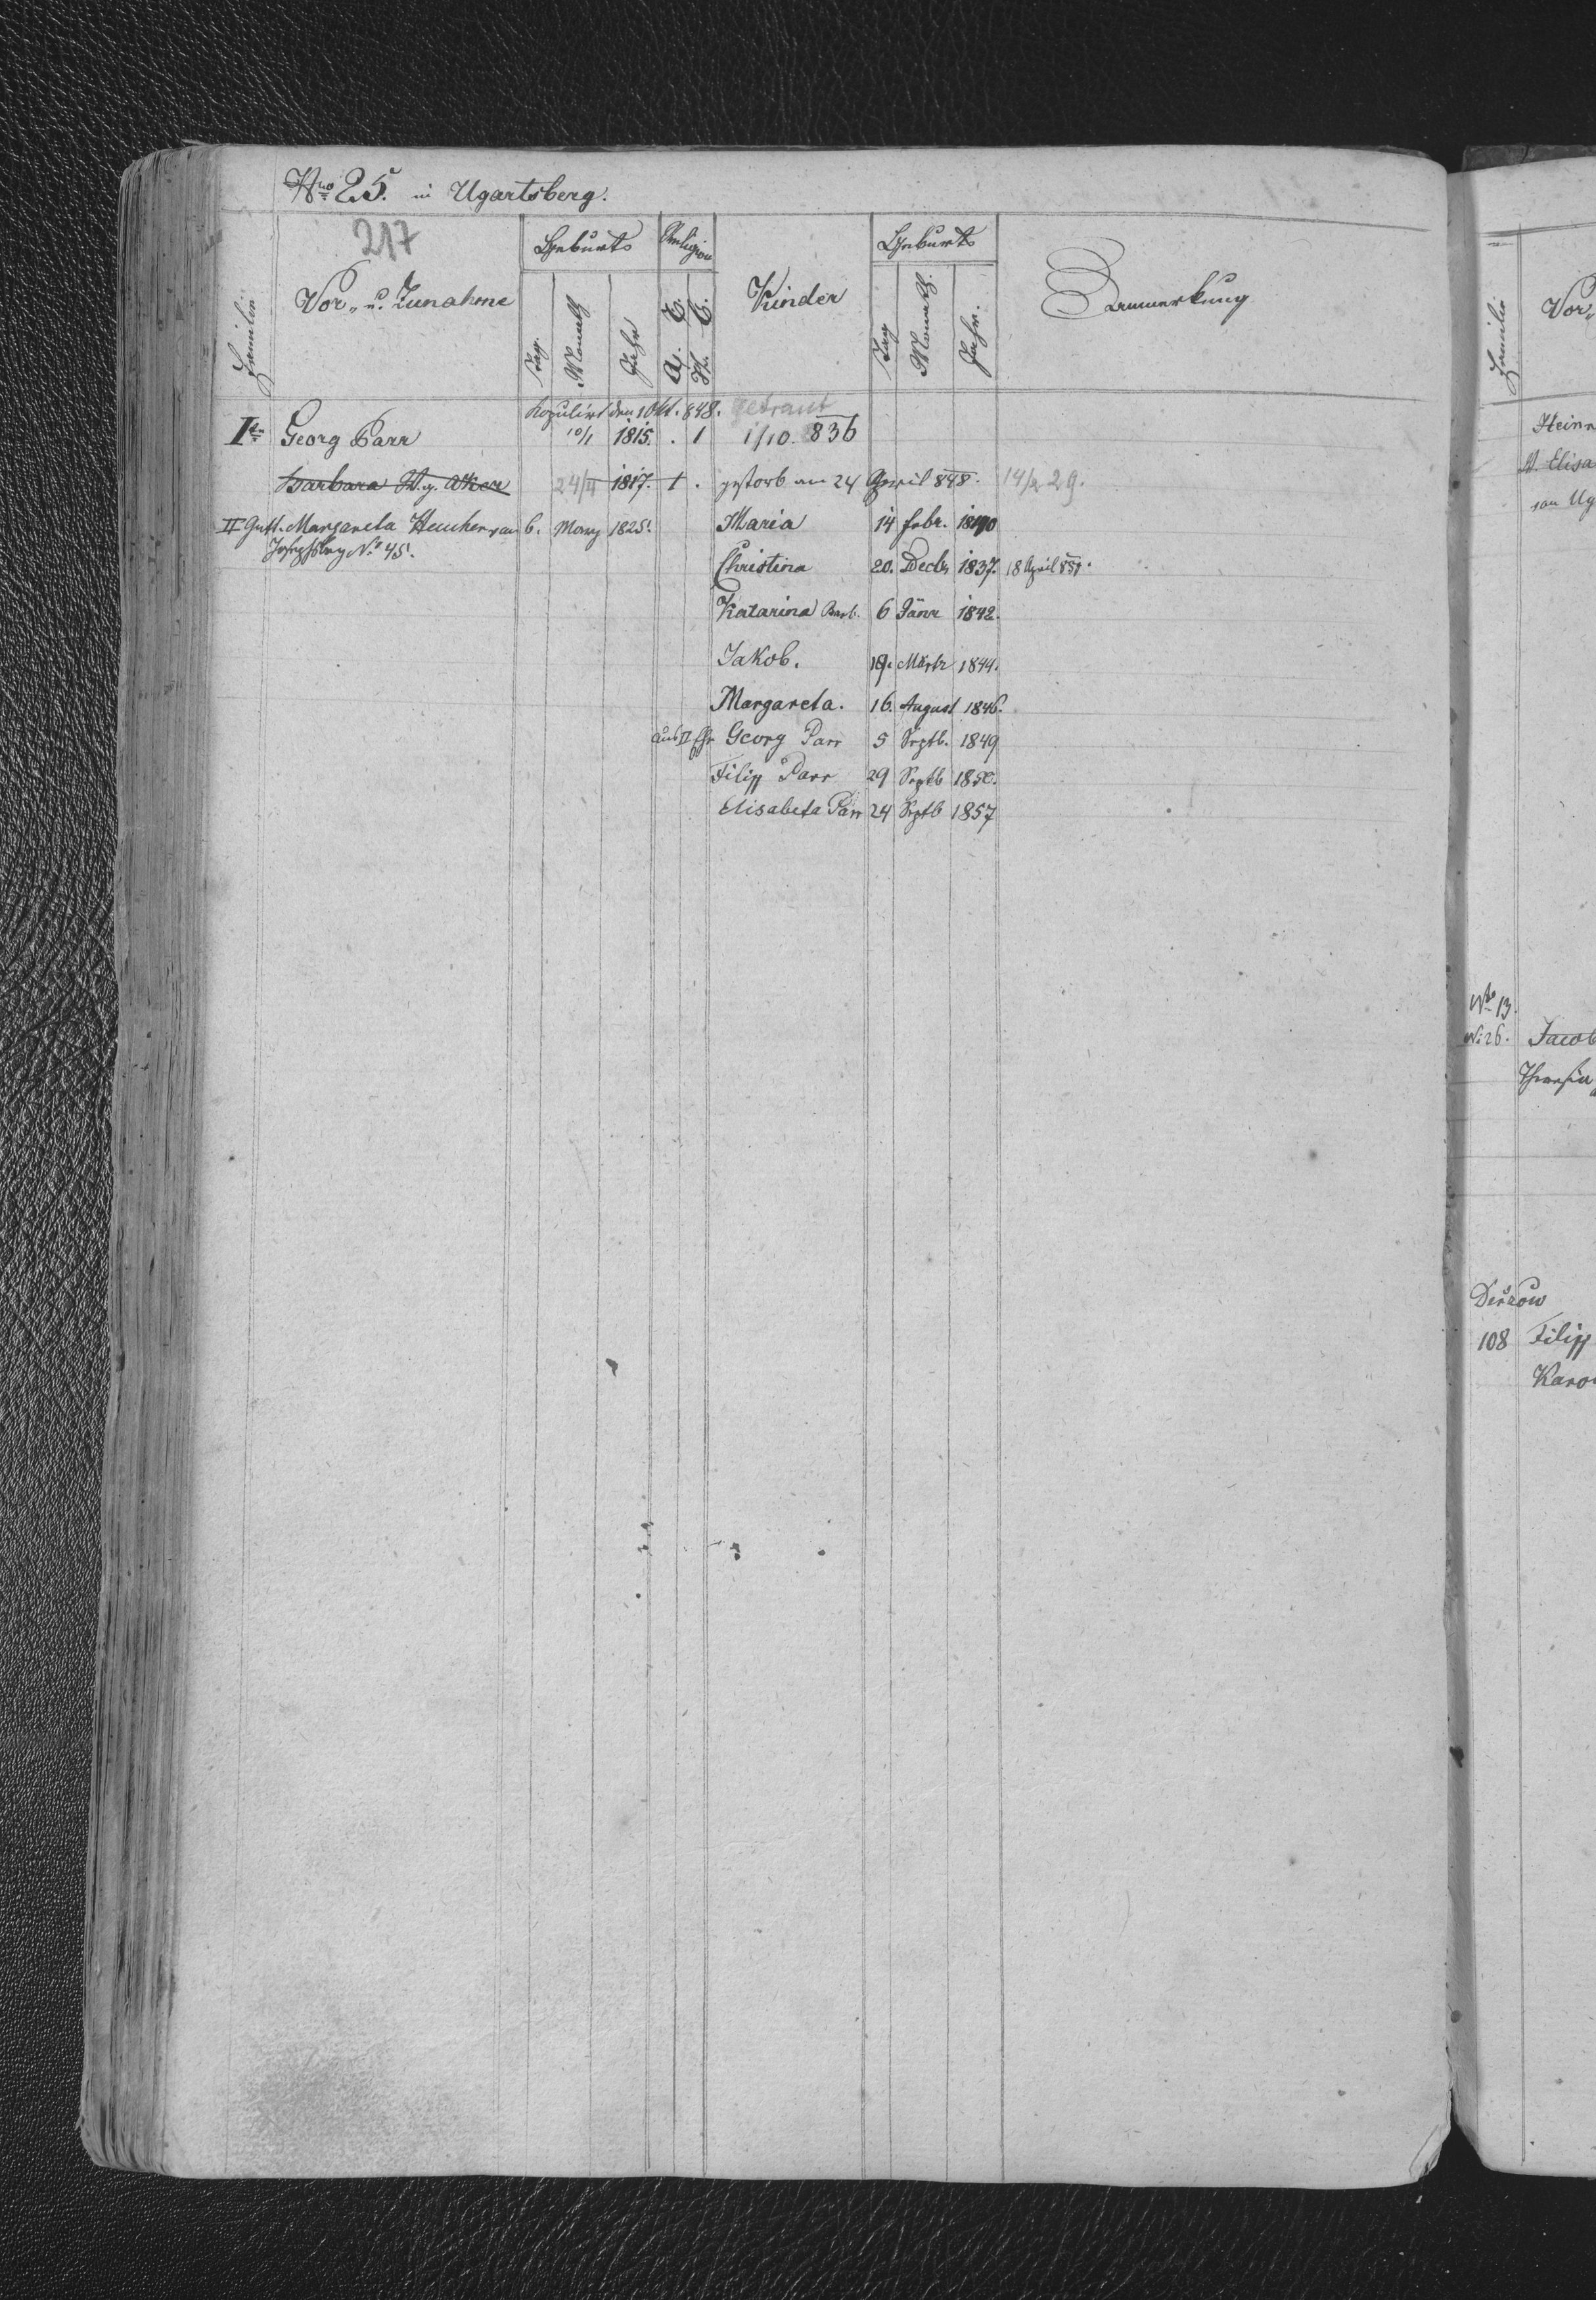 Nro 25. in Ugartsberg.
217
Familie Vor- u. Zunahme Geburts Religion Kinder Geburts Anmerkung
Tag. Monath Jahr A. C. H. C. Tag Monath. Jahr.
Kopulirt den 1 Okt. 848. getraut
Ite Georg Parr 10/1 1815. . 1 1/10. 836
Barbara W. g. 24/4 1817. 1 . gestorb am 24 April 848. 14/2 29.
II Gatt. Margareta Heucher von 6. 1825. Maria 14 Febr. 1840
Josephsberg No 45.
Christina 20. Decbr 1837. 18 April
Katarina Barb. 6 Jänr 1842.
Jakob. 19. März 1844.
Margareta. 16. August 1846.
aus II Ehe Georg Parr 5 Septb. 1849
Filipp Parr 29 Septb
Elisabeta Parr 24 Septb 1857
Familie Vor-
Heinr
W. Elisa
von Ug
No 13.
No 26. Jacob
Theresia
108 Filipp
Karo